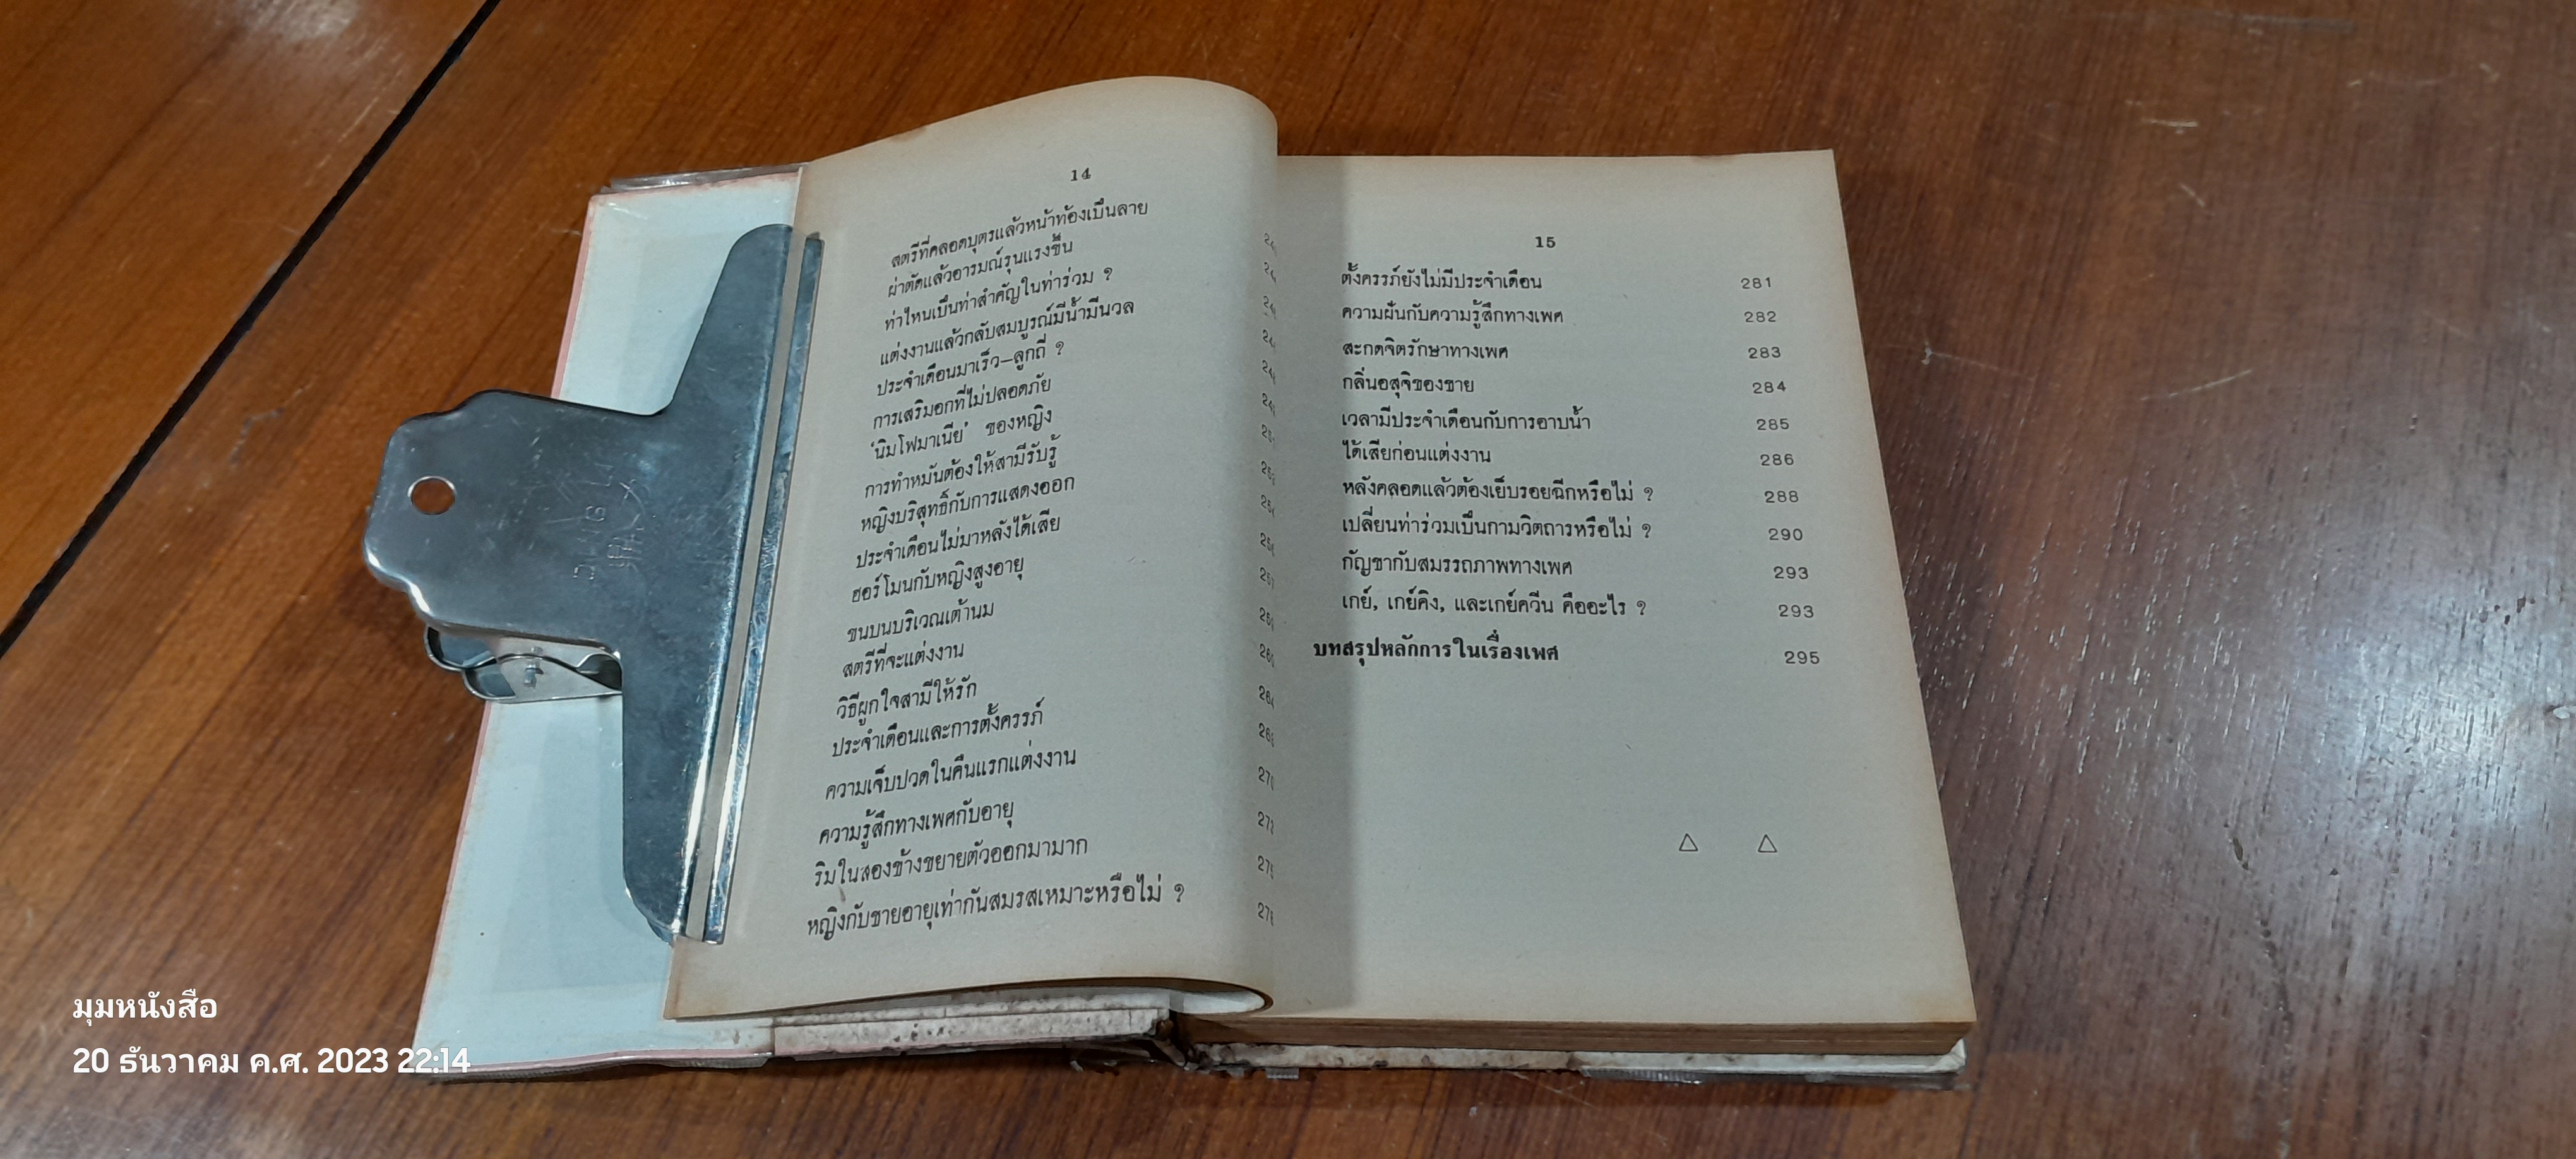 14
สตรีที่คลอดบุตรแล้วหน้าท้องเป็นลาย
ผ่าตัดแล้วอารมณ์รุนแรงขึ้น
ท่าไหนเป็นท่าสำคัญในท่าร่วม ?
แต่งงานแล้วกลับสมบูรณ์มีน้ำมีนวล
ประจำเดือนมาเร็ว–ลูกถี่ ?
การเสริมอกที่ไม่ปลอดภัย
'นิมโฟมาเนีย' ของหญิง
การทำหมันต้องให้สามีรับรู้
หญิงบริสุทธิ์กับการแสดงออก
ประจำเดือนไม่มาหลังได้เสีย
ฮอร์โมนกับหญิงสูงอายุ
ขนบนบริเวณเต้านม
สตรีที่จะแต่งงาน
วิธีผูกใจสามีให้รัก
ประจำเดือนและการตั้งครรภ์
ความเจ็บปวดในคืนแรกแต่งงาน
ความรู้สึกทางเพศกับอายุ
ริมในสองข้างขยายตัวออกมามาก
หญิงกับชายอายุเท่ากันสมรสเหมาะหรือไม่ ?
15
ตั้งครรภ์ยังไม่มีประจำเดือน 281
ความฝันกับความรู้สึกทางเพศ 282
สะกดจิตรักษาทางเพศ 283
กลิ่นอสุจิของชาย 284
เวลามีประจำเดือนกับการอาบน้ำ 285
ได้เสียก่อนแต่งงาน 286
หลังคลอดแล้วต้องเย็บรอยฉีกหรือไม่ ? 288
เปลี่ยนท่าร่วมเป็นกามวิตถารหรือไม่ ? 290
กัญชากับสมรรถภาพทางเพศ 293
เกย์, เกย์คิง, และเกย์ควีน คืออะไร ? 293
บทสรุปหลักการในเรื่องเพศ 295
มุมหนังสือ
20 ธันวาคม ค.ศ. 2023 22:14